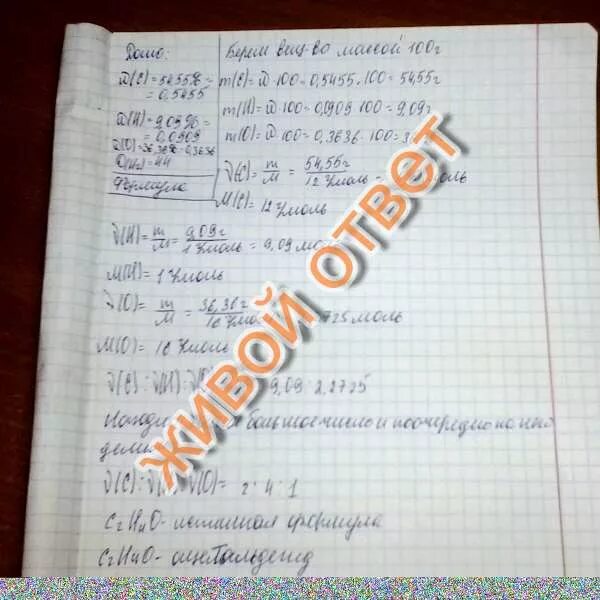 Дано:
ω(C)=54,55% =
= 0,5455
ω(H)=9,09%=
= 0,0909
ω(O)=36,36% =0,3636
D(H₂)=44
Формула
Берем вещ-во массой 100г
m(C)=ω·100=0,5455·100=54,55г
m(H)=ω·100=0,0909·100=9,09г
m(O)=ω·100=0,3636·100=
ν(C)= m/M = 54,55г/12 г/моль =
M(C)=12 г/моль
ν(H)= m/M = 9,09г/1 г/моль = 9,09 моль
M(H)=1 г/моль
ν(O)= m/M = 36,36г/16 г/моль моль
M(O)=16 г/моль
ν(C):ν(H):ν(O) 9,09:2,2725
большое число и поочередно на него
ν(C):ν(H):ν(O)= 2:4:1
C₂H₄O- истинная формула
C₂H₄O- ацетальдегид
ЖИВОЙ ОТВЕТ